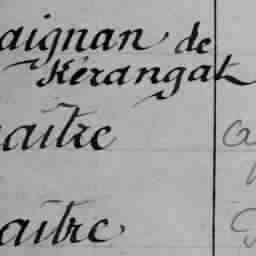 aignan de
Kérangat
aître
aître